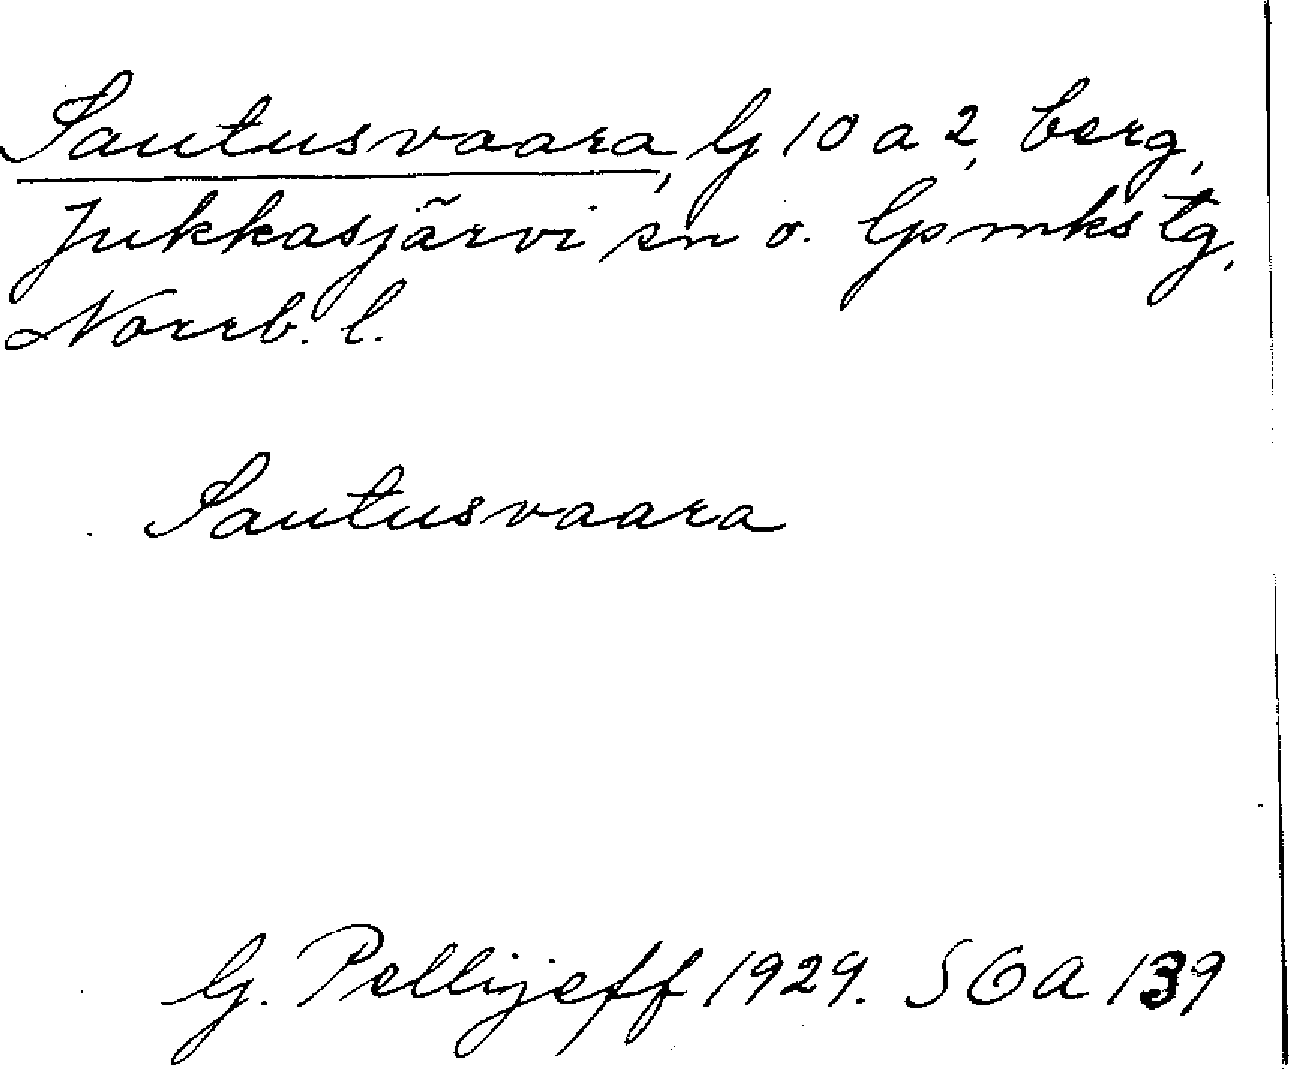 Sautusvaara, G 10 a 2, berg,
Jukkasjärvi sn o. lpmkstg,
Norrb. l.
Sautusvaara
G. Pellijeff 1929. SOA 139